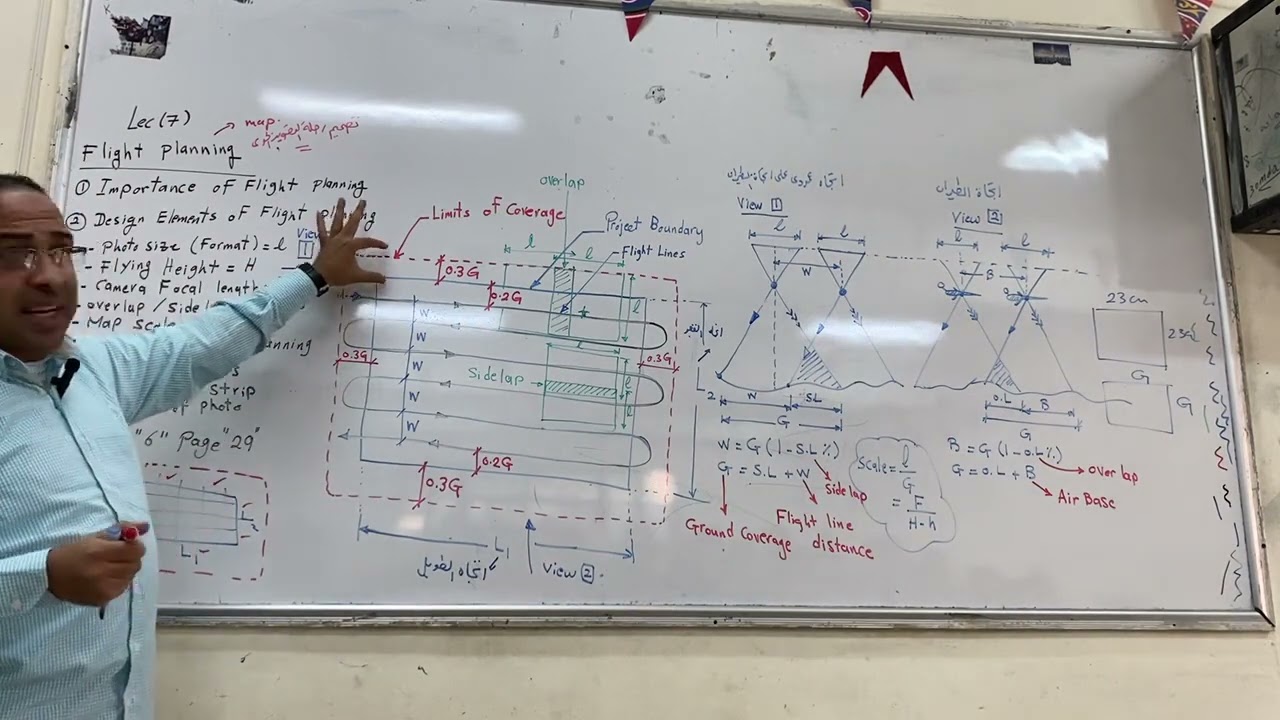 Lec (7)
Flight planning
map.
① Importance of Flight planning
② Design Elements of Flight planning
- Photo size (Format) = l
- Flying Height = H
- Camera Focal length
- overlap / Side
- Map
strip
photo
"6" Page "29"
L1
View
1
Limits of Coverage
overlap
l
l
Project Boundary
Flight Lines
0.3G
0.2G
W
W
W
W
0.3G
0.3G
l
l
Sidelap
l
l
0.2G
0.3G
L1
اتجاه الطويل
View 2
L2
اتجاه عمودى على اتجاه الطيران
View 1
l
l
W
W
S.L
G
W = G (1 - S.L %)
G = S.L + W
Side lap
Ground Coverage
Flight line
distance
Scale = l/G
= F/H-h
اتجاة الطيران
View 2
l
l
B
O.L
B
G
B = G (1 - O.L %)
G = O.L + B
overlap
Air Base
23cm
23cm
G
G